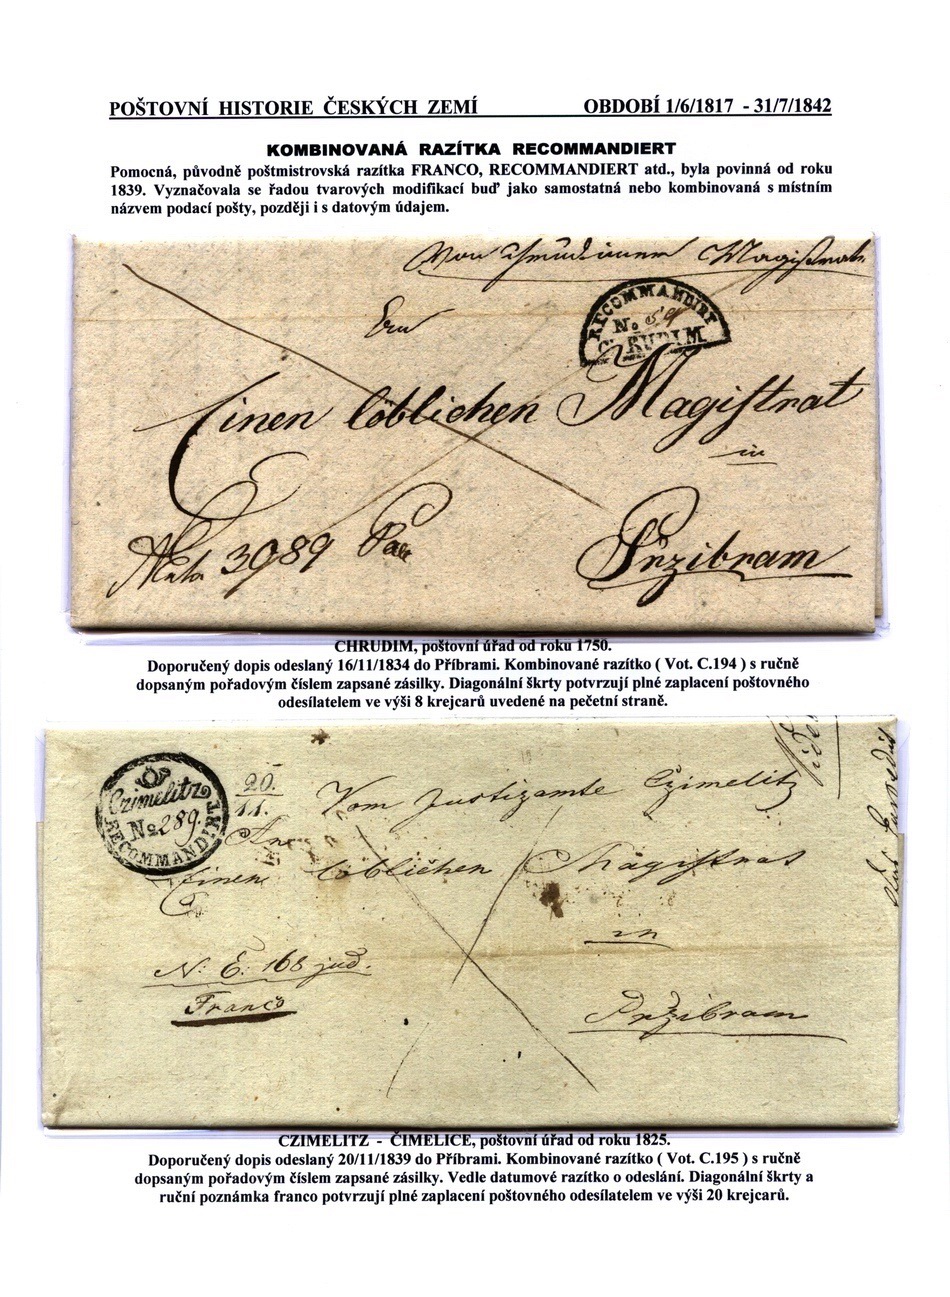 POŠTOVNÍ HISTORIE ČESKÝCH ZEMÍ OBDOBÍ 1/6/1817 - 31/7/1842
KOMBINOVANÁ RAZÍTKA RECOMMANDIERT
Pomocná, původně poštmistrovská razítka FRANCO, RECOMMANDIERT atd., byla povinná od roku
1839. Vyznačovala se řadou tvarových modifikací buď jako samostatná nebo kombinovaná s místním
názvem podací pošty, později i s datovým údajem.
Magistrat
RECOMMANDIRT
No
CHRUDIM
Einen löblichen Magistrat
in
3989
Przibram
CHRUDIM, poštovní úřad od roku 1750.
Doporučený dopis odeslaný 16/11/1834 do Příbrami. Kombinované razítko ( Vot. C.194 ) s ručně
dopsaným pořadovým číslem zapsané zásilky. Diagonální škrty potvrzují plné zaplacení poštovného
odesílatelem ve výši 8 krejcarů uvedené na pečetní straně.
Czimelitz
No 289.
RECOMMANDIRT
20.
11.
Vom Justizamte Czimelitz
An
Einen löblichen Magistrat
in
N: E: 168 jud.
Franco
Przibram
CZIMELITZ - ČIMELICE, poštovní úřad od roku 1825.
Doporučený dopis odeslaný 20/11/1839 do Příbrami. Kombinované razítko ( Vot. C.195 ) s ručně
dopsaným pořadovým číslem zapsané zásilky. Vedle datumové razítko o odeslání. Diagonální škrty a
ruční poznámka franco potvrzují plné zaplacení poštovného odesílatelem ve výši 20 krejcarů.